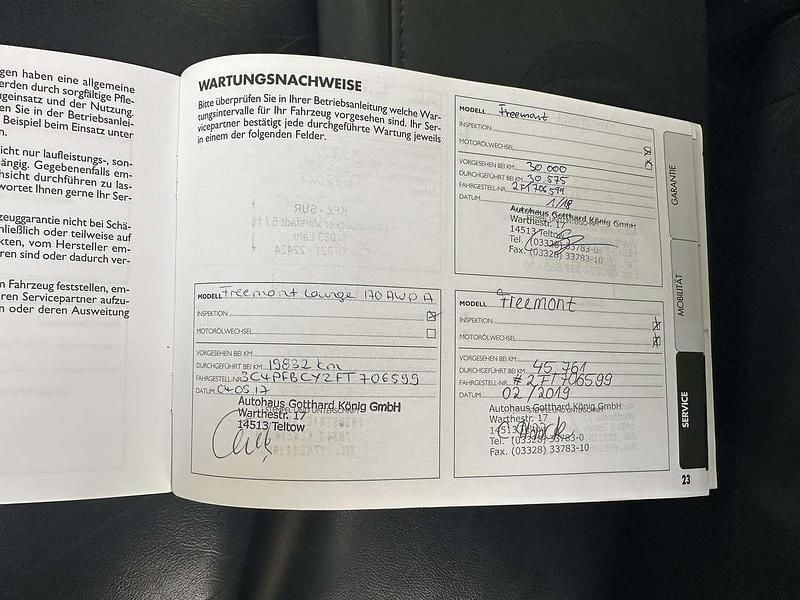 gen haben eine allgemeine
erden durch sorgfältige Pfle-
geinsatz und der Nutzung.
en Sie in der Betriebsanlei-
Beispiel beim Einsatz unter
n.
icht nur laufleistungs-, son-
ängig. Gegebenenfalls em-
hsicht durchführen zu las-
wortet Ihnen gerne Ihr Ser-
zeuggarantie nicht bei Schä-
hließlich oder teilweise auf
kten, vom Hersteller em-
ren sind oder dadurch ver-
m Fahrzeug feststellen, em-
ren Servicepartner aufzu-
n oder deren Ausweitung
WARTUNGSNACHWEISE
Bitte überprüfen Sie in Ihrer Betriebsanleitung welche War-
tungsintervalle für Ihr Fahrzeug vorgesehen sind. Ihr Ser-
vicepartner bestätigt jede durchgeführte Wartung jeweils
in einem der folgenden Felder.
MODELL Freemont Lounge 170 AWD A
INSPEKTION
MOTORÖLWECHSEL
VORGESEHEN BEI KM
DURCHGEFÜHRT BEI KM 19832 km
FAHRGESTELL-NR. 3C4PFBCY2FT706599
DATUM 04.05.17
Autohaus Gotthard König GmbH
Warthestr. 17
14513 Teltow
MODELL Freemont
INSPEKTION
MOTORÖLWECHSEL
VORGESEHEN BEI KM 30.000
DURCHGEFÜHRT BEI KM 30 575
FAHRGESTELL-NR. 2FT706599
DATUM 1/18
Autohaus Gotthard König GmbH
Warthestr. 17
14513 Teltow
Tel. (03328) 33783-0
Fax. (03328) 33783-10
MODELL Freemont
INSPEKTION
MOTORÖLWECHSEL
VORGESEHEN BEI KM
DURCHGEFÜHRT BEI KM 45.761
FAHRGESTELL-NR. #2FT706599
DATUM 02/2019
Autohaus Gotthard König GmbH
Warthestr. 17
14513 Teltow
Tel. (03328) 33783-0
Fax. (03328) 33783-10
GARANTIE
MOBILITÄT
SERVICE
23